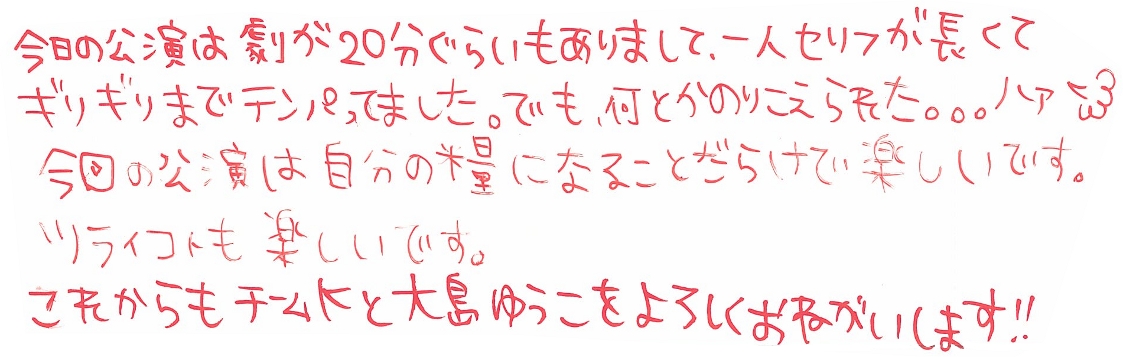 今日の公演は劇が20分ぐらいもありまして、一人セリフが長くて
ギリギリまでテンパってました。でも、何とかのりこえられた。。。ハァ
今回の公演は自分の糧になることだらけで楽しいです。
ツライコトも楽しいです。
これからもチームKと大島ゆうこをよろしくおねがいします!!